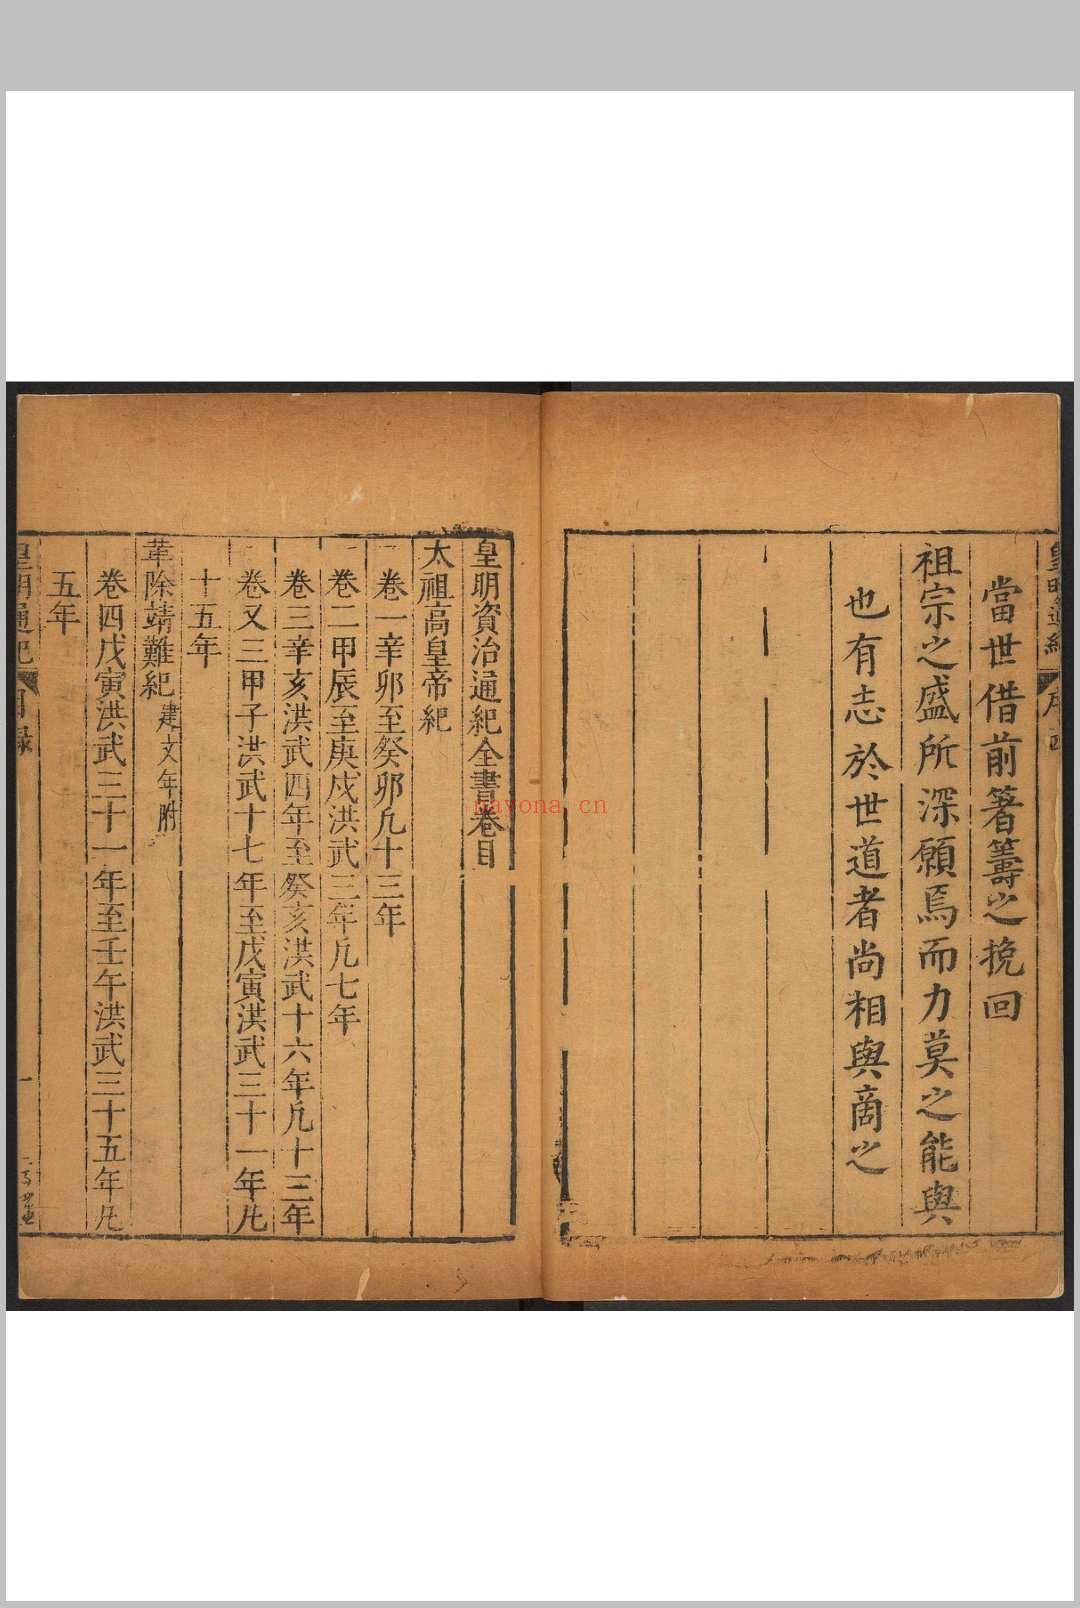 皇明通紀 序
當世借前箸籌之挽回
祖宗之盛所深願焉而力莫之能與
也有志於世道者尚相與啇之
皇明資治通紀全書卷目
太祖高皇帝紀
卷一辛卯至癸卯凢十三年
卷二甲辰至庚戍洪武三年凢七年
卷三辛亥洪武四年至癸亥洪武十六年凢十三年
卷又三甲子洪武十七年至戊寅洪武三十一年凢
十五年
革除靖難紀建文年附
卷四戊寅洪武三十一年至壬午洪武三十五年凢
五年
皇明通紀 目錄 一
nayona.cn